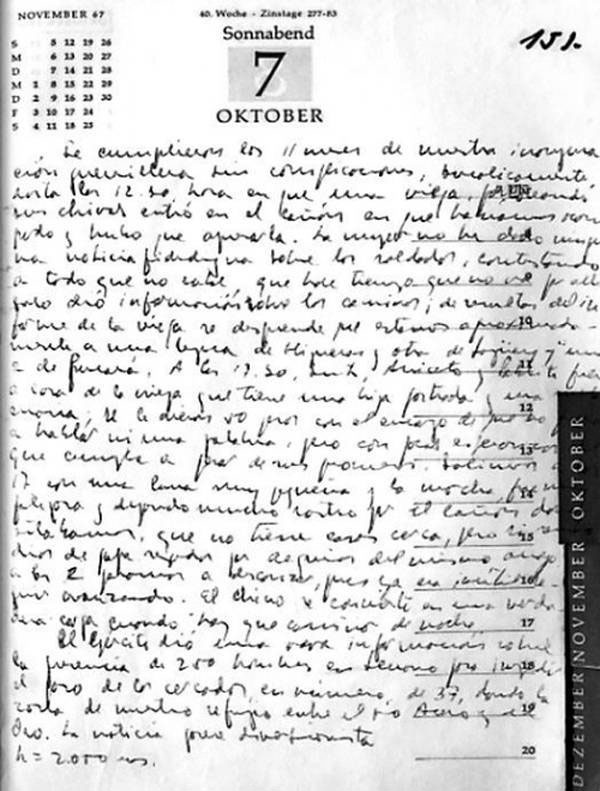 NOVEMBER 67
S 5 12 19 26
M 6 13 20 27
D 7 14 21 28
M 1 8 15 22 29
D 2 9 16 23 30
F 3 10 17 24
S 4 11 18 25
40. Woche - Zinstage 277-83
Sonnabend
7
OKTOBER
151.
Se cumplieron los 11 meses de nuestra inaugura
ción guerrillera sin complicaciones, bucolicamente
hasta las 12.30 hora en que una vieja, pastoreando
sus chivas entró en el cañón en que habíamos acam
pado y hubo que apresarla. La mujer no ha dado ningu
na noticia fidedigna sobre los soldados, contestando
a todo que no sabe, que hace tiempo que no va por alli
solo dió información sobre los caminos; de resultas del in
forme de la vieja se desprende que estamos aproximada-
mente a una legua de Higueras y otra de Jaguey y
2 de Pucará. A las 17.30, Inti, Aniceto y Pablito fueron
a casa de la vieja que tiene una hija postrada y una
enana; se le dieron 50 pesos con el encargo de que no
a hablar ni una palabra, pero con pocas esperanzas
que cumpla a pesar de sus promesas. Salimos
17 con una luna muy pequeña y la marcha fue
y dejando mucho rastro por el cañón
estábamos, que no tiene casas cerca, pero
dios de papa regados por acequias del mismo arroyo
a las 2 paramos a descansar, pues ya era inútil se-
guir avanzando. El Chino se convierte en una verda-
dera carga cuando hay que caminar de noche.
El Ejército dió una rara información sobre
la presencia de 250 hombres en Serrano para impedir
el paso de los cercados en número de 37, dando la
zona de nuestro refugio entre el río Acero y el
Oro. La noticia parece diversionista
h = 2.000 ms.
10
11
12
13
14
15
16
17
18
19
20
DEZEMBER NOVEMBER OKTOBER